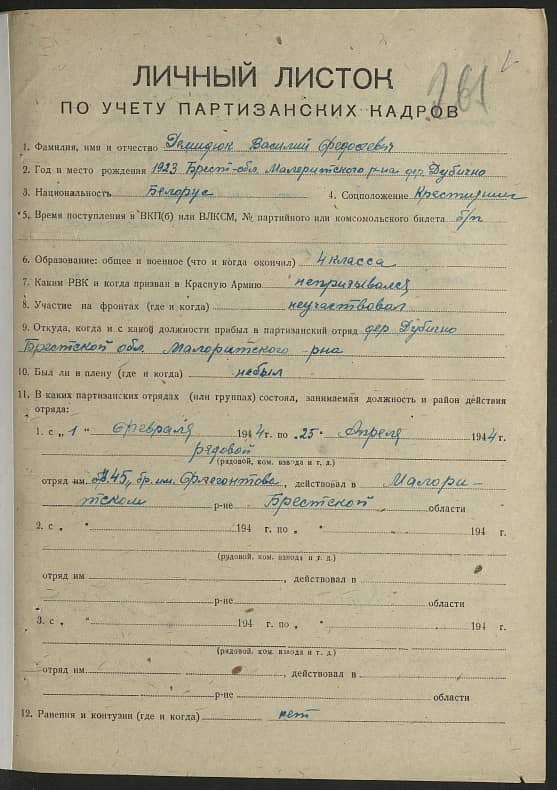 261
ЛИЧНЫЙ ЛИСТОК
ПО УЧЕТУ ПАРТИЗАНСКИХ КАДРОВ
1. Фамилия, имя и отчество Демидюк Василий Федосеевич
2. Год и место рождения 1923 Брест-обл. Малоритского р-на дер Дубично
3. Национальность Белорус 4. Соцположение Крестьянин
5. Время поступления в ВКП(б) или ВЛКСМ, № партийного или комсомольского билета б/п
6. Образование: общее и военное (что и когда окончил) 4 класса
7. Каким РВК и когда призван в Красную Армию непризывался
8. Участие на фронтах (где и когда) неучаствовал
9. Откуда, когда и с какой должности прибыл в партизанский отряд дер Дубично
Брестской обл. Малоритского р-на
10. Был ли в плену (где и когда) небыл
11. В каких партизанских отрядах (или группах) состоял, занимаемая должность и район действия
отряда:
1. с „ 1 " Февраля 1944 г. по „ 25 " Апреля 1944 г.
рядовой
(рядовой, ком. взвода и т. д.)
отряд им. 345, бр. им. Флегонтова, действовал в Малори-
тском р-не Брестской области
2. с „ " 194 г. по „ " 194 г.
(рядовой, ком. взвода и т. д.)
отряд им , действовал в
р-не области
3. с „ " 194 г. по „ " 194 г.
(рядовой, ком. взвода и т. д.)
отряд им. , действовал в
р-не области
12. Ранения и контузии (где и когда) нет